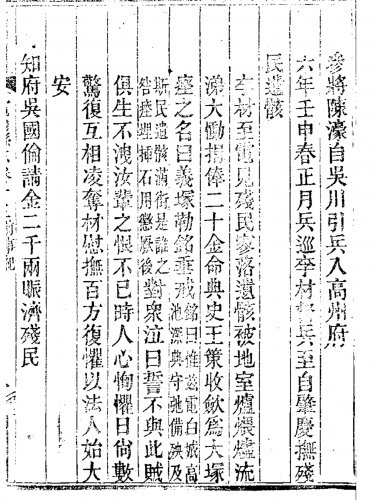 參將陳濠自吳川引兵入高州府
六年壬申春正月兵巡李材督兵至自肇慶撫殘
民遺骸
李材至電見殘民寥落遺骸被地室爐煨燼流
涕大慟捐俸二十金命典史王策收歛爲大塚
瘞之名曰義塚勒銘垂戒銘曰惟茲電白城高池深典守弛備殃及
斯民遺骸滿街是誰之咎瘞埋揷石用懲厥後對衆泣曰誓不與此賊
俱生不洩汝輩之恨不已時人心恟懼日尚數
驚復互相凌奪材慰撫百方復懼以法人始大
安
知府吳國倫請金二千兩賑濟殘民